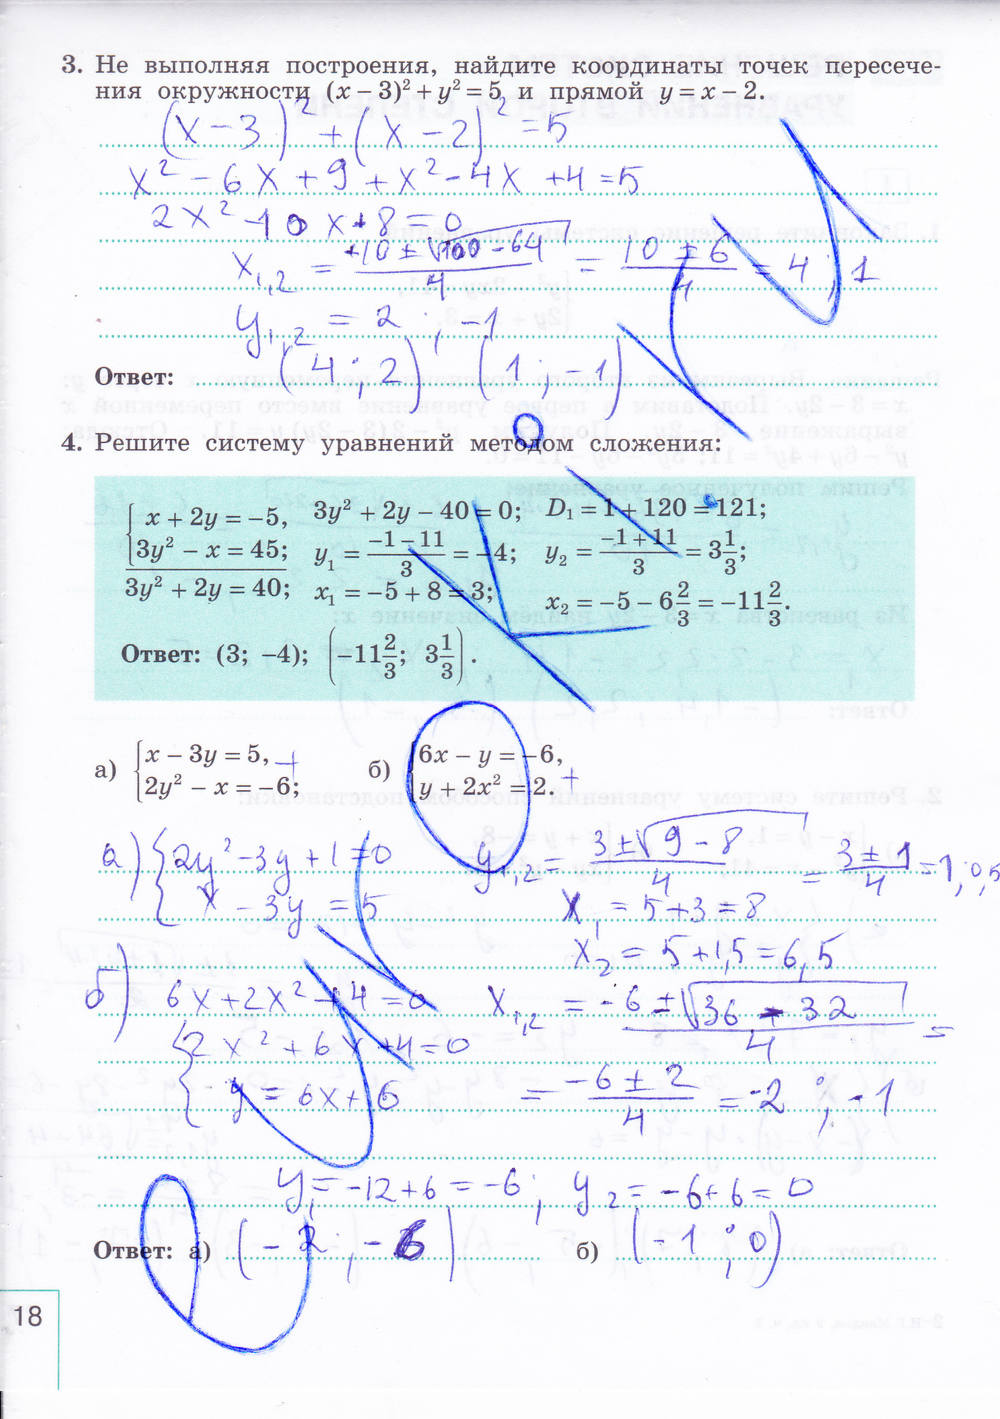 3. Не выполняя построения, найдите координаты точек пересече-
ния окружности (x − 3)² + y² = 5 и прямой y = x − 2.
(x − 3)² + (x − 2)² = 5
x² − 6x + 9 + x² − 4x + 4 = 5
2x² − 10x + 8 = 0
x₁,₂ = (+10 ± √(100 − 64))/4 = (10 ± 6)/4 = 4 ; 1
y₁,₂ = 2 ; −1
Ответ: (4 ; 2) (1 ; −1)
4. Решите систему уравнений методом сложения:
{x + 2y = −5, 3y² + 2y − 40 = 0; D₁ = 1 + 120 = 121;
{3y² − x = 45; y₁ = (−1 − 11)/3 = −4; y₂ = (−1 + 11)/3 = 3 1/3;
3y² + 2y = 40; x₁ = −5 + 8 = 3; x₂ = −5 − 6 2/3 = −11 2/3.
Ответ: (3; −4); (−11 2/3; 3 1/3).
а) {x − 3y = 5, + б) {6x − y = −6,
{2y² − x = −6; {y + 2x² = 2. +
а) {2y² − 3y + 1 = 0 y₁,₂ = (3 ± √(9 − 8))/4 = (3 ± 1)/4 = 1 ; 0,5
{x − 3y = 5 x₁ = 5 + 3 = 8
x₂ = 5 + 1,5 = 6,5
б) 6x + 2x² + 4 = 0 x₁,₂ = (−6 ± √(36 − 32))/4 =
{2x² + 6x + 4 = 0
{y = 6x + 6 = (−6 ± 2)/4 = −2 ; −1
y₁ = −12 + 6 = −6 ; y₂ = −6 + 6 = 0
Ответ: а) (−2 ; −6) б) (−1 ; 0)
18